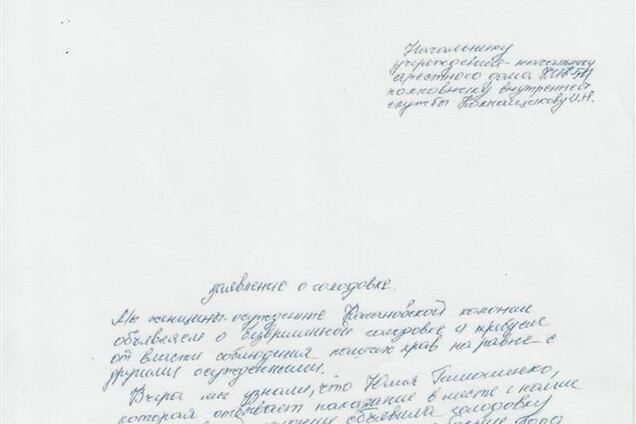 Начальнику
учреждения - начальнику
арестного дома
полковнику внутренней
службы
заявление о голодовке.
Мы женщины осужденные Качановской колонии
объявляем о безвременной голодовке и требуем
от власти соблюдения наших прав на равне с
другими осужденными.
Вчера мы узнали, что Юлия Тимошенко,
которая отбывает наказание в месте с нами
объявила голодовку